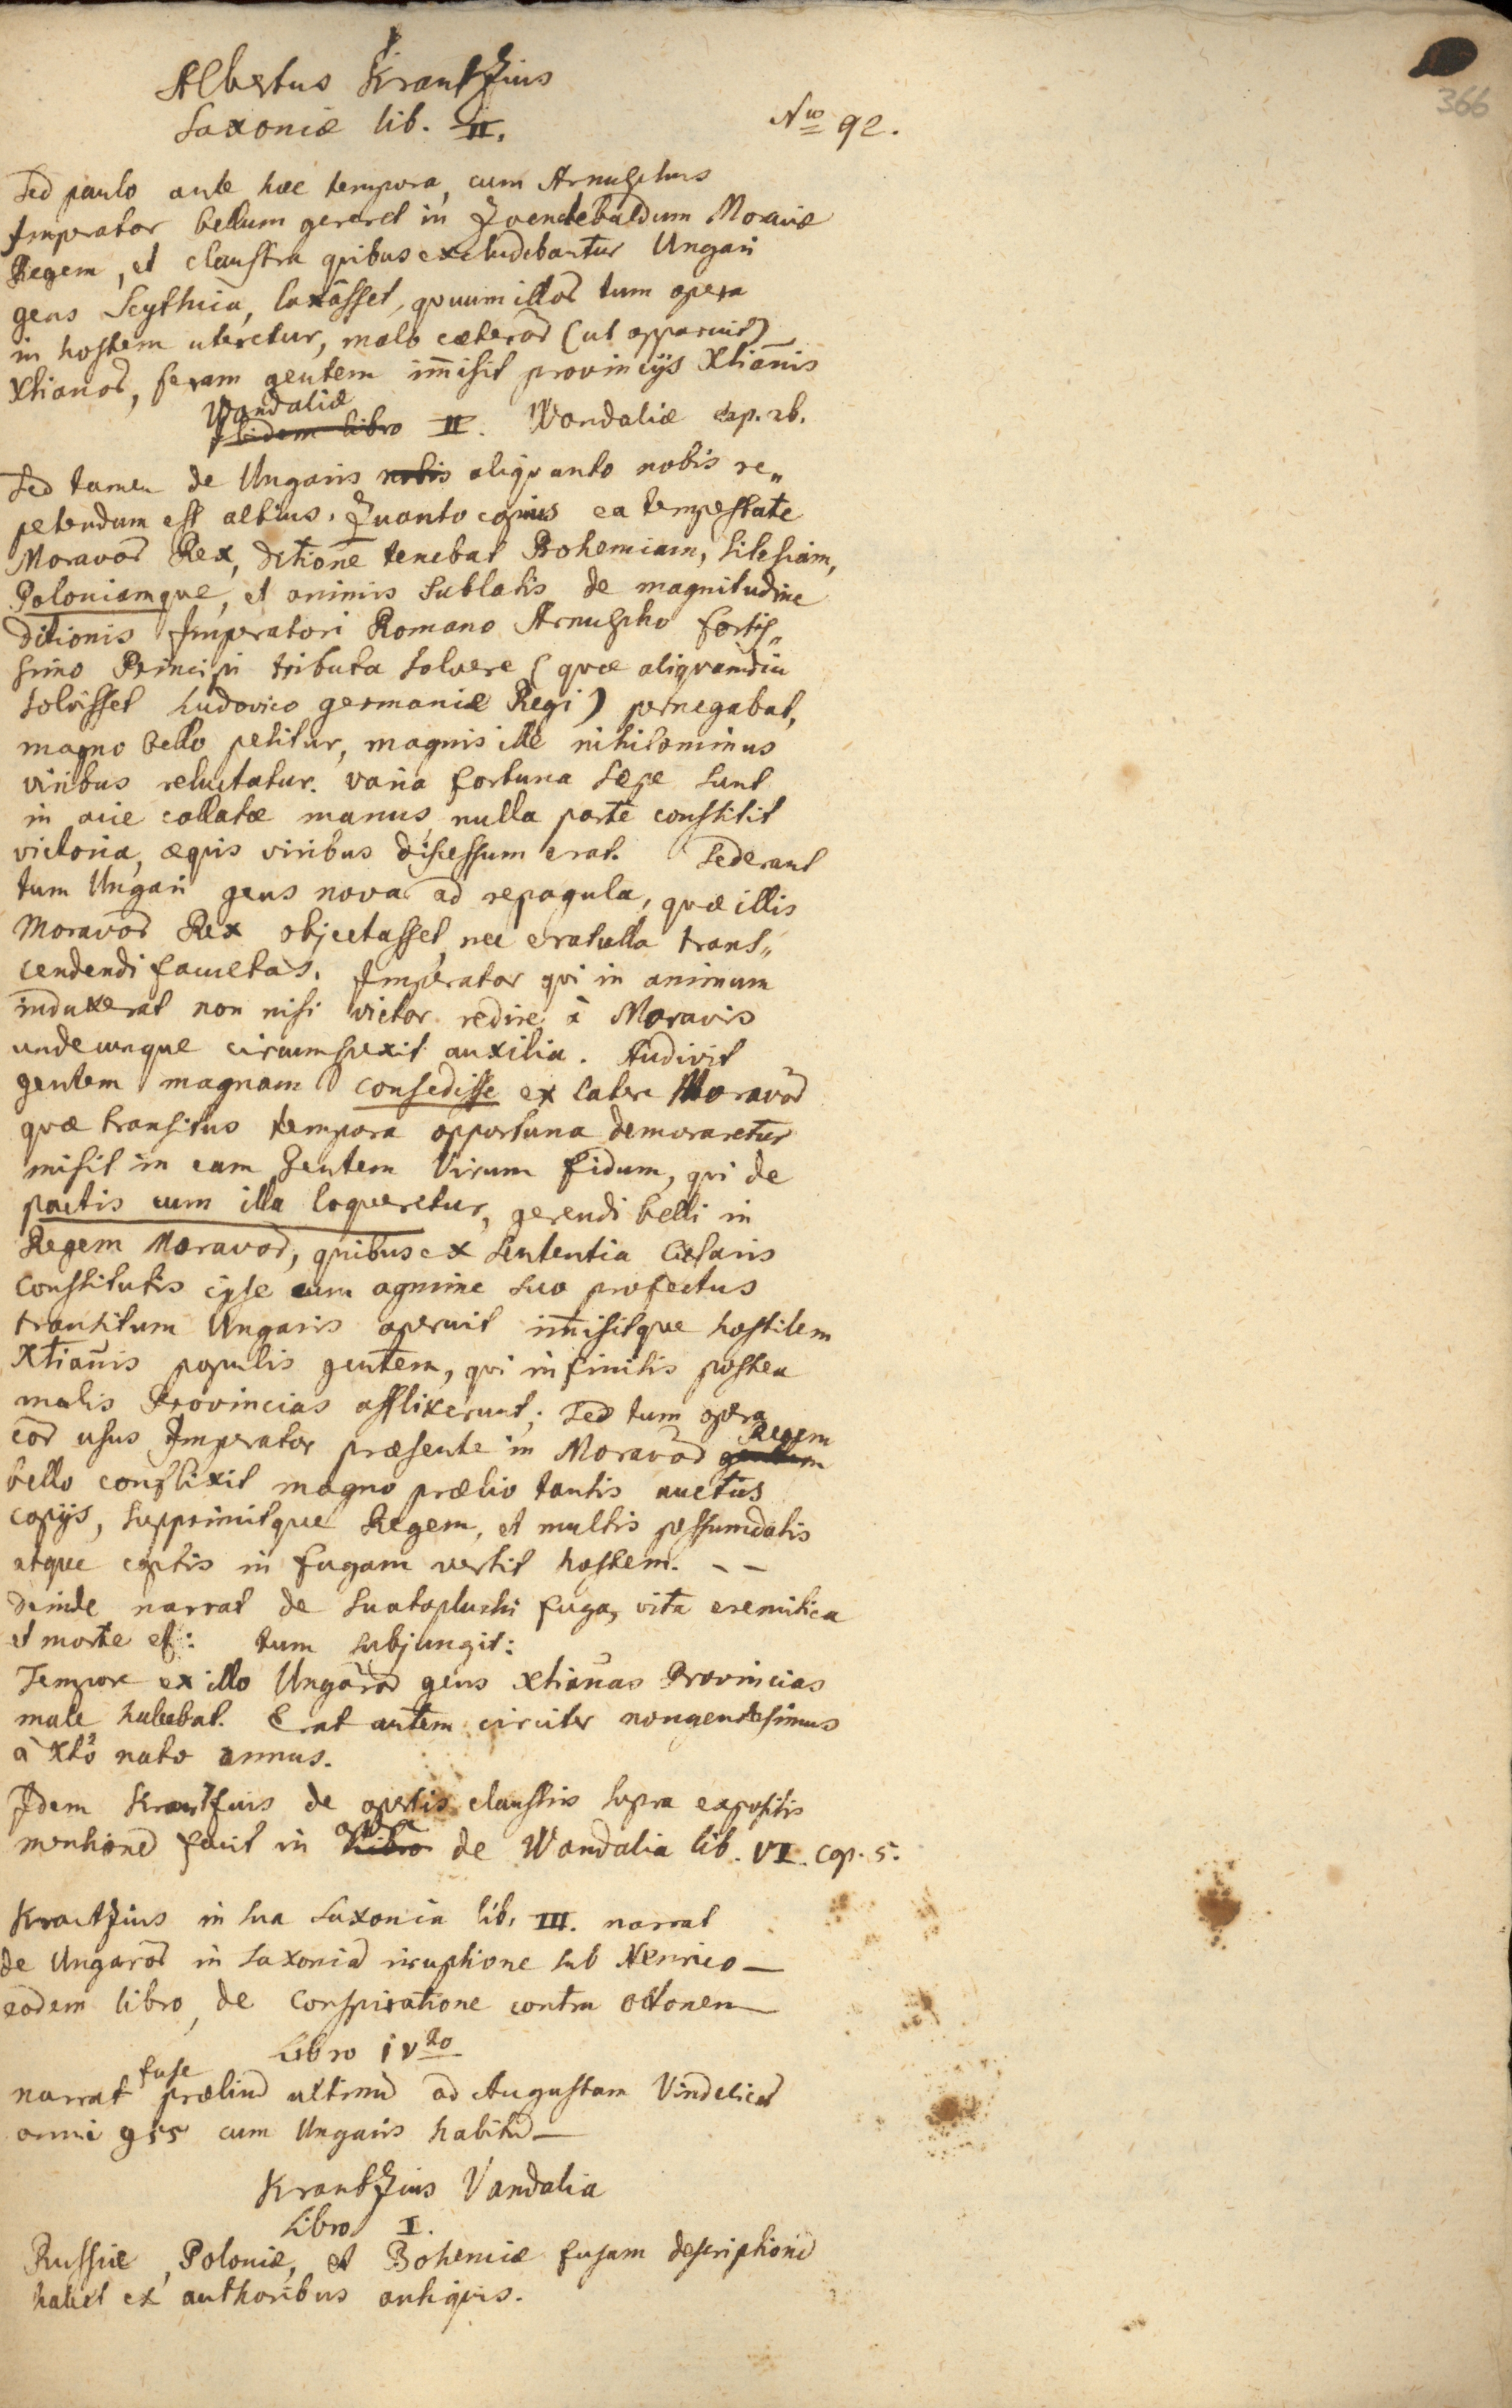 366
Albertus Krantzius
Saxoniæ lib. II.
Nro 92.
Sed paulo ante hæc tempora, cum Arnulphus
Imperator bellum gereret in Zvendebaldum Moraviæ
Regem, et claustra quibus excludebantur Ungari
gens Scythica, laxâsset, quum illor̄ tum opera
in hostem uteretur, malo cæteror̄ (ut apparuit)
Xtianor̄, feram gentem im̄isit provincijs Xtianis
Wandaliæ
Ibidem libro II. Wandaliæ cap. 26.
Sed tamen de Ungaris nobis aliquanto nobis re„
petendum est altius. Quanto ea tempestate
Moravor̄ Rex, ditione tenebat Bohemiam, Silesiam,
Poloniamque, et animis sublatis de magnitudine
ditionis Imperatori Romano Arnulpho fortis„
simo Principi tributa solvere (quæ aliquamdiu
solvisset Ludovico germaniæ Regi) pernegabat,
magno bello petitur, magnis ille nihilominus
viribus reluctatur. varia fortuna sæpe sunt
in acie collatæ manus, nulla parte constitit
victoria, æquis viribus discessum erat. Sederant
tum Ungari gens nova ad repagula, quæ illis
Moravor̄ Rex objectasset, nec erat ulla trans„
cendendi facultas. Imperator qui in animum
induxerat non nisi victor redire à Moravis
undecunque circumspexit auxilia. Audivit
gentem magnam consedisse ex latere Moravor̄
quæ transitus tempora opportuna demoraretur
misit in eam Gentem Virum fidum, qui de
pactis cum illa loqueretur, gerendi belli in
Regem Moravor̄, quibus ex sententia Cæsaris
constitutis ipse cum agmine suo profectus
transitum Ungaris aperuit im̄isitque hostilem
Xtianis populis gentem, qui infinitis postea
malis Provincias afflixerunt; sed tum opera
eor̄ usus Imperator præsente in Moravor̄ gentem Regem
bello conflixit magno prælio tantis auctus
copijs, supprimitque Regem, et multis pessumdatis
atque captis in fugam vertit hostem. – –
deinde narrat de Suatopluchi fuga, vita eremitica
et morte et: tum subjungit:
Tempore ex illo Ungaror̄ gens Xtianas Provincias
male habebat. Erat autem circiter nongentesimus
à Xto nato annus.
Idem Krantzius de apertis claustris supra expositis
mentionē facit in Libro opere de Wandalia lib. VI. cap. 5.
Krantzius in sua Saxonia lib. III. narrat
de Ungaror̄ in Saxoniā irruptione sub Henrico —
eodem libro, de conspiratione contra Ottonem —
Libro IVto
narrat fuse præliū ultimū ad Augustam Vindelicor̄
anni 955 cum Ungaris habitū —
Krantzius Vandalia
Libro I.
Russiæ, Poloniæ, et Bohemiæ fusam descriptionē
habet ex authoribus antiquis.